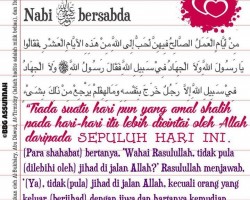 Nabi ﷺ bersabda
مَا مِنْ أَيَّامٍ الْعَمَلُ الصَّالِحُ فِيهِنَّ أَحَبُّ إِلَى اللَّهِ مِنْ هَذِهِ الْأَيَّامِ الْعَشْرِ فَقَالُوا
يَا رَسُولَ اللَّهِ وَلَا الْجِهَادُ فِي سَبِيلِ اللَّهِ فَقَالَ رَسُولُ اللَّهِ ﷺ وَلَا الْجِهَادُ
فِي سَبِيلِ اللَّهِ إِلَّا رَجُلٌ خَرَجَ بِنَفْسِهِ وَمَالِهِ فَلَمْ يَرْجِعْ مِنْ ذَلِكَ بِشَيْءٍ
"Tiada suatu hari pun yang amal shalih
pada hari-hari itu lebih dicintai oleh Allah
daripada SEPULUH HARI INI.
(Para shahabat) bertanya, 'Wahai Rasulullah, tidak pula
(dilebihi oleh) jihad di jalan Allah?' Rasulullah menjawab,
'(Ya), tidak(pula) jihad di jalan Allah, kecuali orang yang
keluar (berjihad) dengan jiwa dan hartanya kemudian
©BBG ASSUNNAH